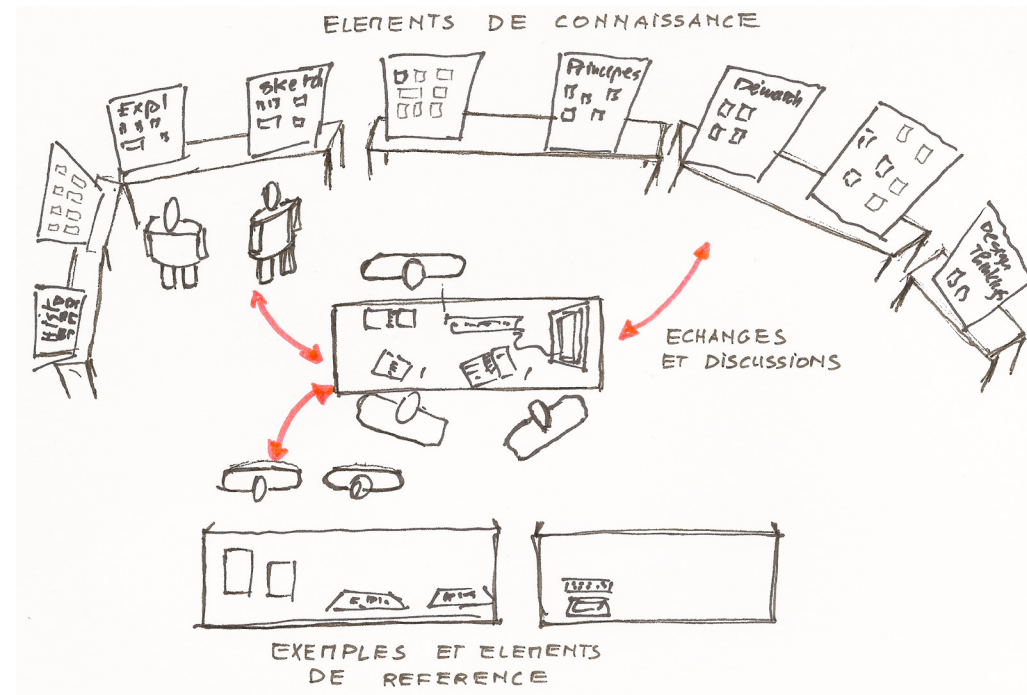 ELEMENTS DE CONNAISSANCE
Expl
Sketch
Principes
Démarch
Design
Thinkings
ECHANGES
ET DISCUSSIONS
EXEMPLES ET ELEMENTS
DE REFERENCE